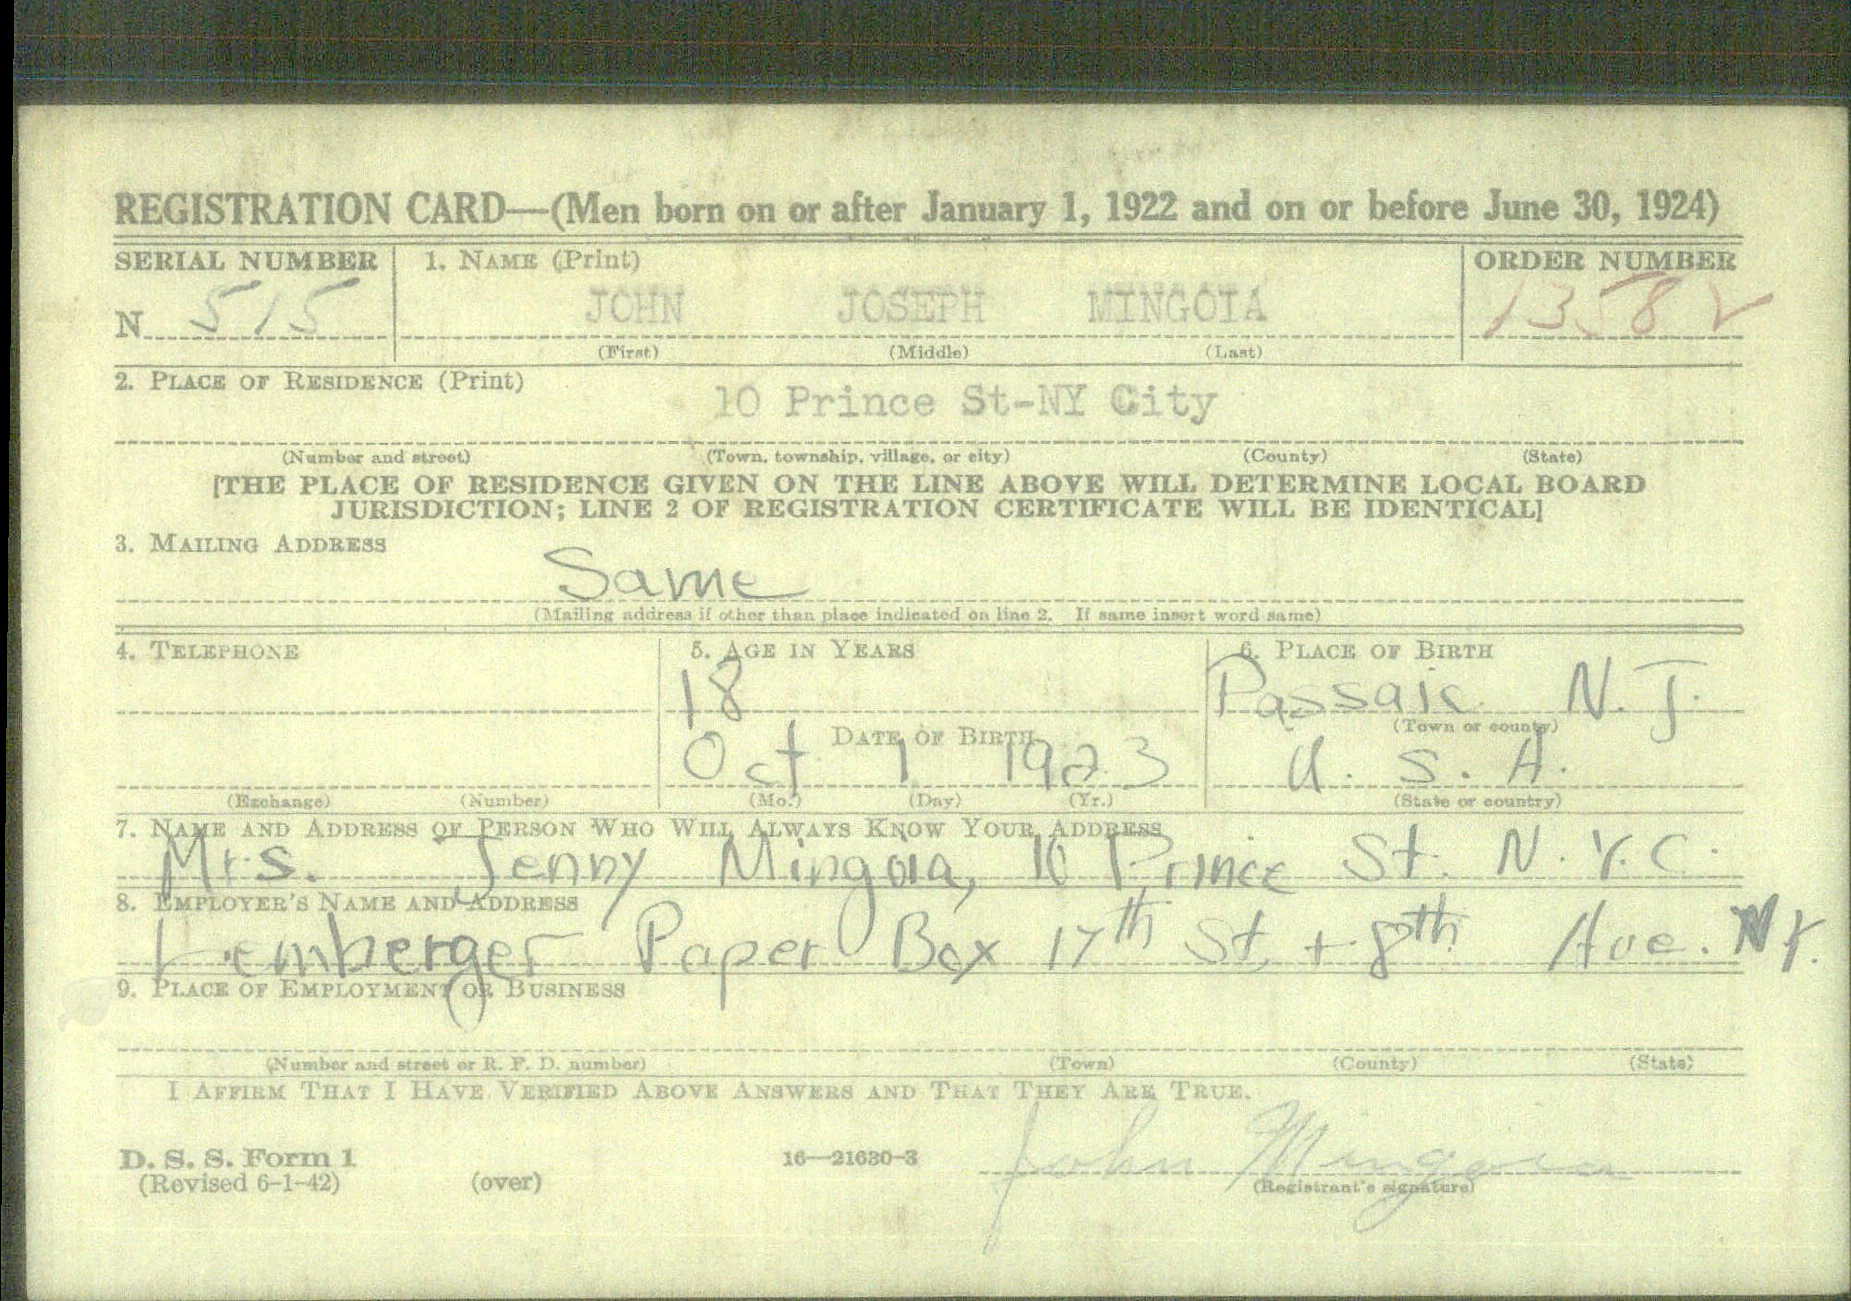 REGISTRATION CARD—(Men born on or after January 1, 1922 and on or before June 30, 1924)
SERIAL NUMBER 1. NAME (Print) ORDER NUMBER
N 515 JOHN JOSEPH MINGOIA 13582
(First) (Middle) (Last)
2. PLACE OF RESIDENCE (Print)
10 Prince St-NY City
(Number and street) (Town, township, village, or city) (County) (State)
[THE PLACE OF RESIDENCE GIVEN ON THE LINE ABOVE WILL DETERMINE LOCAL BOARD
JURISDICTION; LINE 2 OF REGISTRATION CERTIFICATE WILL BE IDENTICAL]
3. MAILING ADDRESS
Same
(Mailing address if other than place indicated on line 2. If same insert word same)
4. TELEPHONE 5. AGE IN YEARS 6. PLACE OF BIRTH
18 Passaic N. J.
DATE OF BIRTH (Town or county)
Oct 1 1923 U. S. A.
(Exchange) (Number) (Mo.) (Day) (Yr.) (State or country)
7. NAME AND ADDRESS OF PERSON WHO WILL ALWAYS KNOW YOUR ADDRESS
Mrs. Jenny Mingoia, 10 Prince St. N.Y.C.
8. EMPLOYER'S NAME AND ADDRESS
Lemberger Paper Box 17th St. + 8th Ave. N.Y.
9. PLACE OF EMPLOYMENT OR BUSINESS
(Number and street or R. F. D. number) (Town) (County) (State)
I AFFIRM THAT I HAVE VERIFIED ABOVE ANSWERS AND THAT THEY ARE TRUE.
D. S. S. Form 1 16—21630-3 John Mingoia
(Revised 6-1-42) (over) (Registrant's signature)